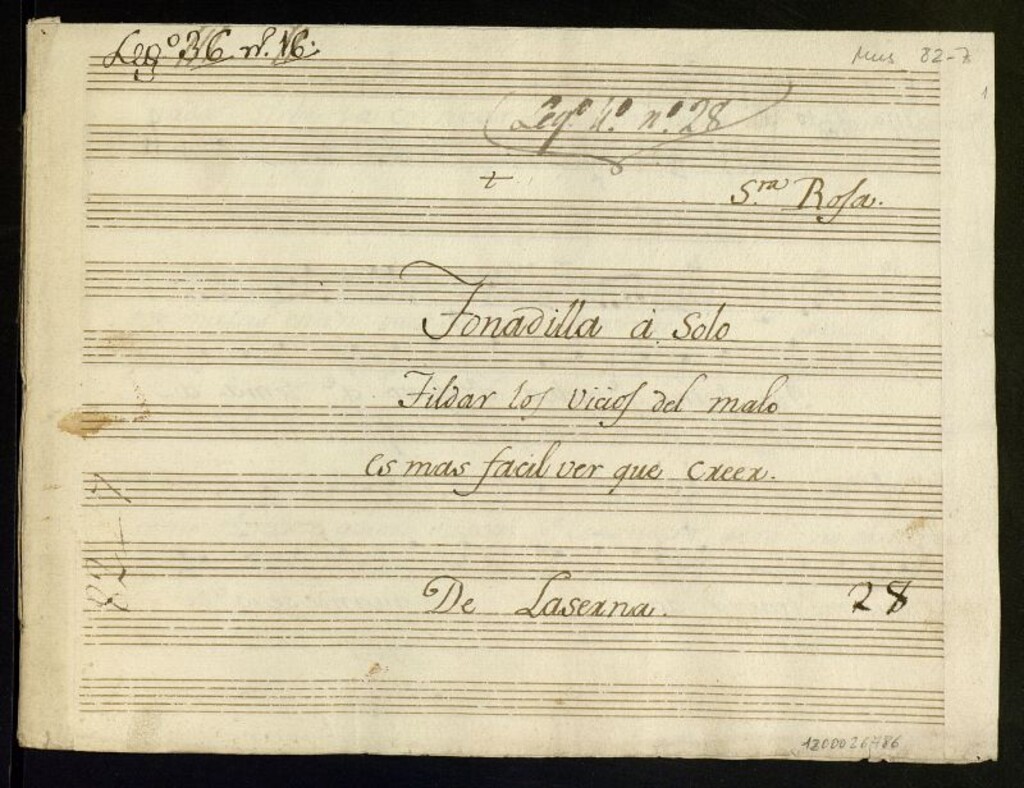 Leg.º 36 n.º 16.
Mus 82-7
1
Leg.º 4.º n.º 28
+
S.ra Rosa.
Tonadilla á Solo
Tildar los vicios del malo
es mas facil ver que creer.
82-7
De Laserna.
28
1200026786